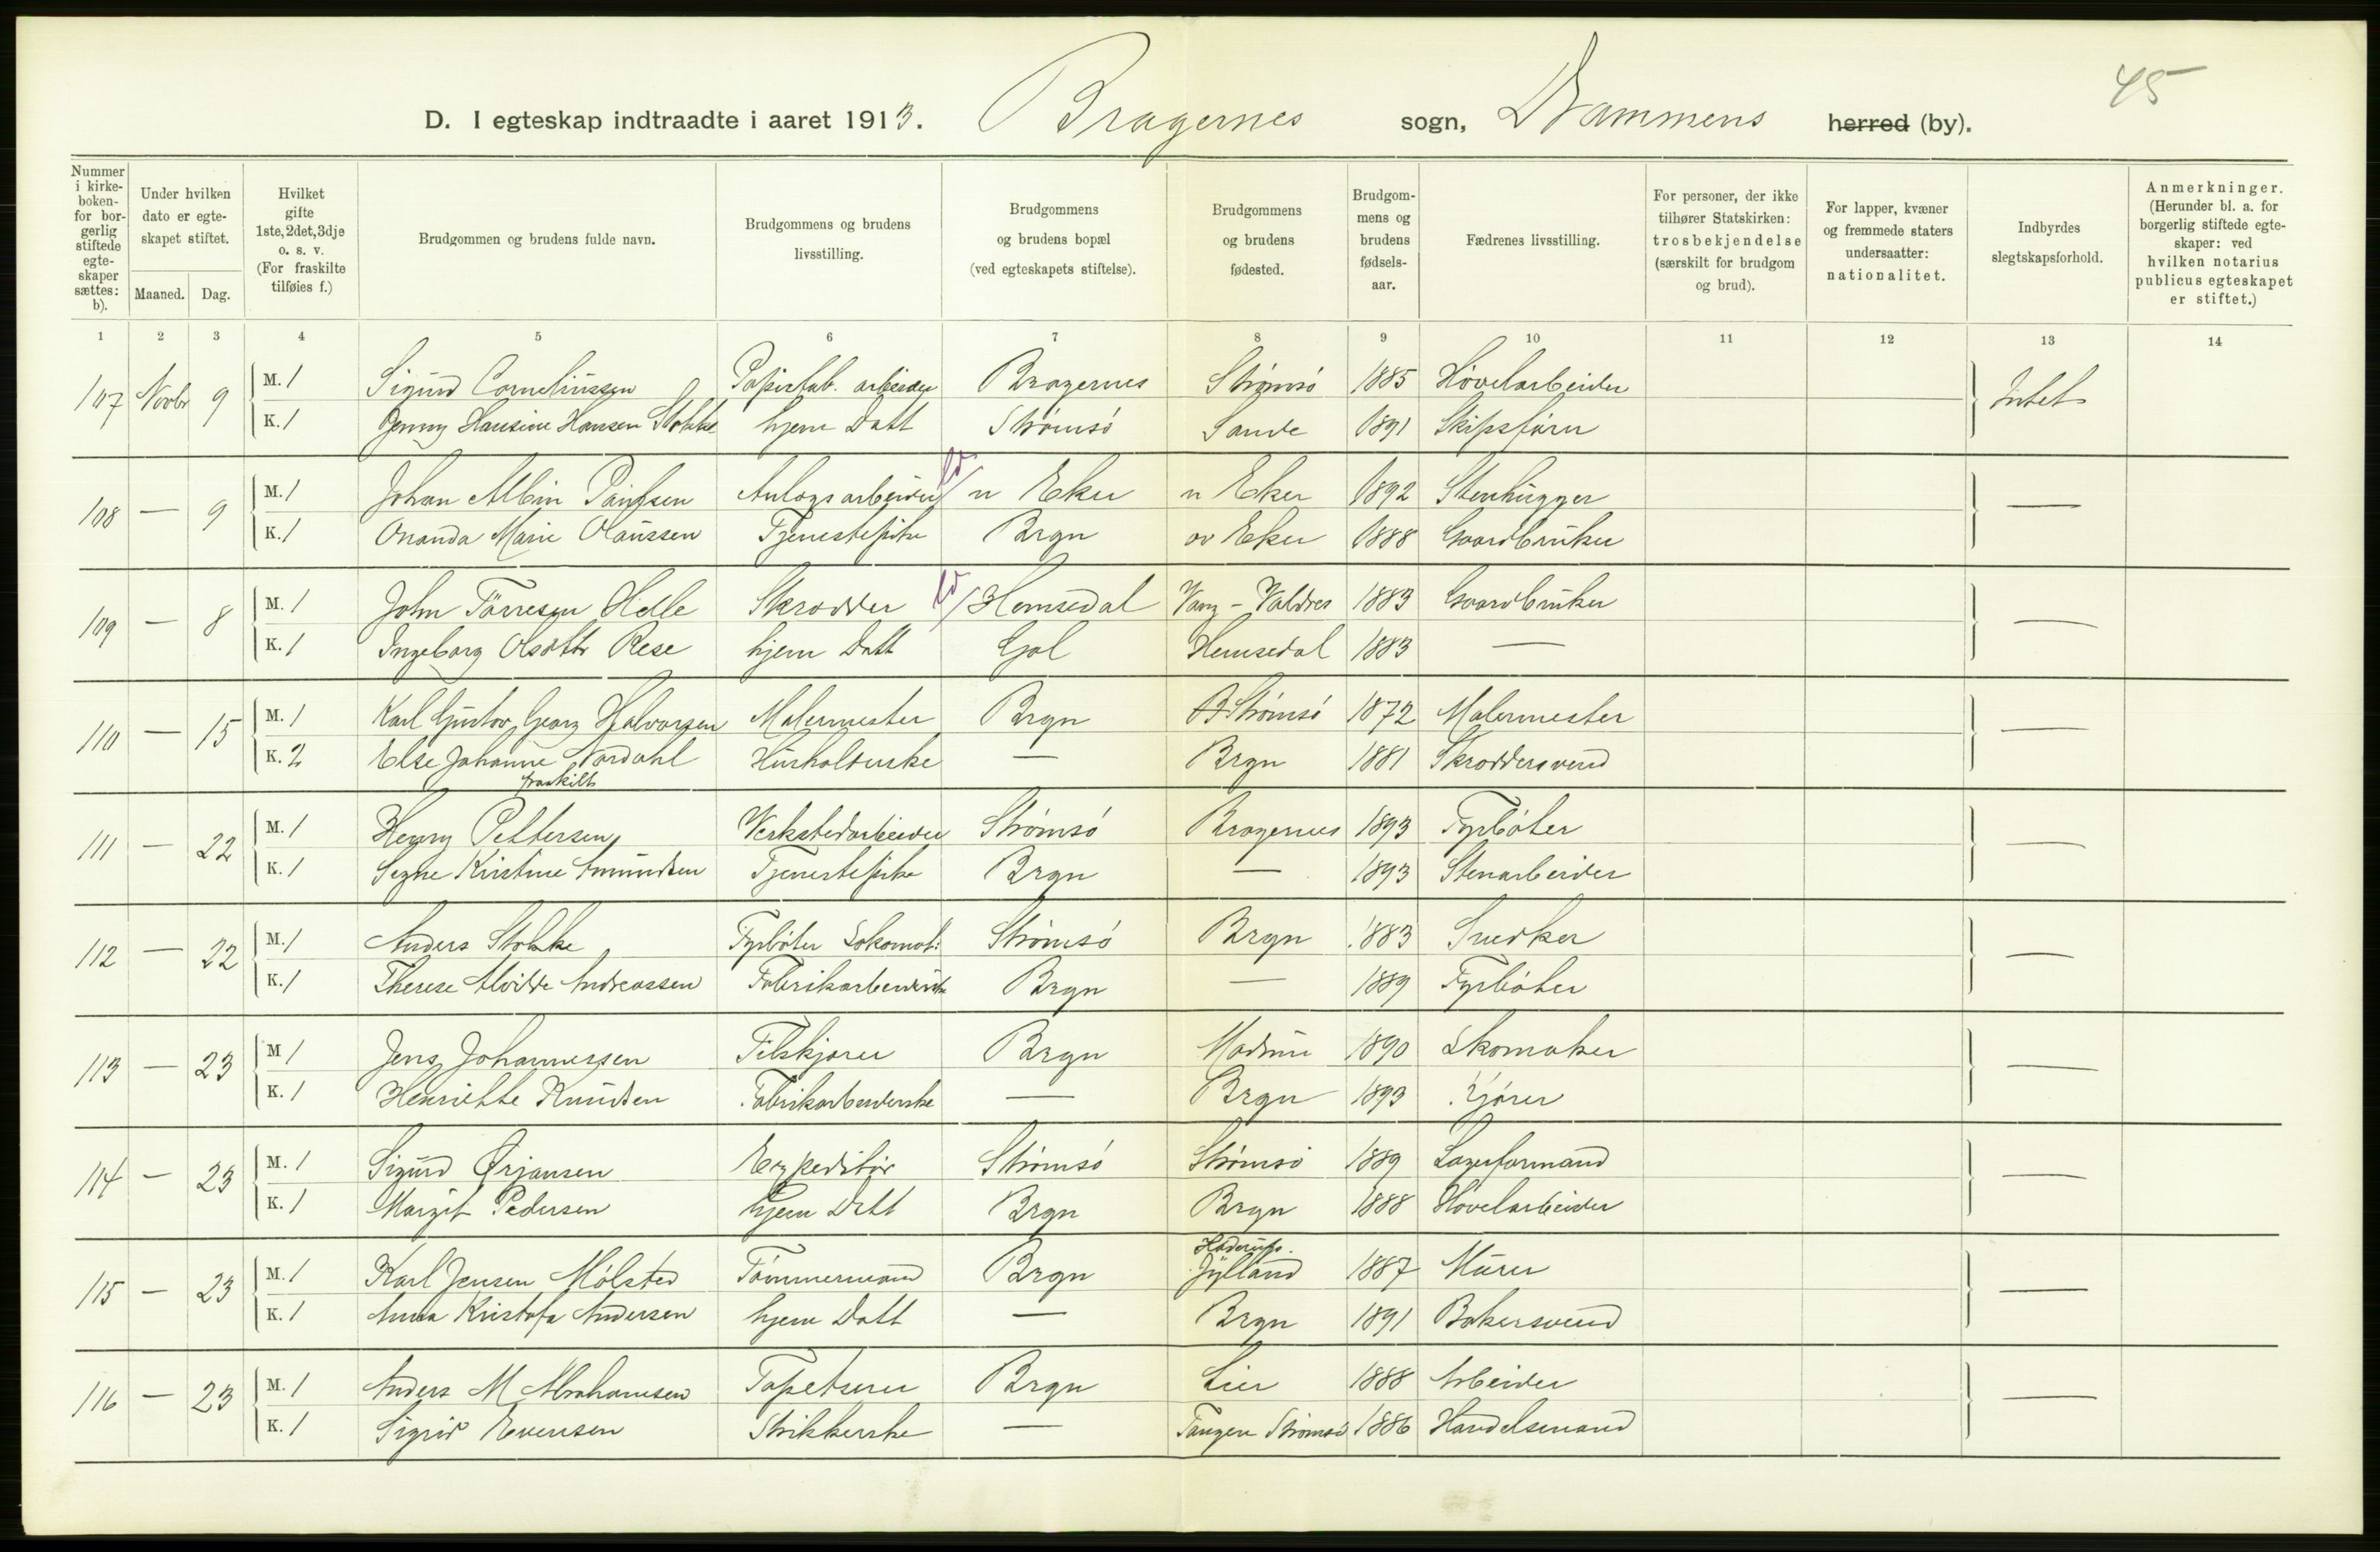 45
D. I egteskap indtraadte i aaret 1913. Bragernes sogn, Drammens herred (by).
Nummer i kirke-boken- for bor-gerlig stiftede egte-skaper sættes: b).
Under hvilken dato er egte-skapet stiftet.
Maaned. Dag.
Hvilket gifte 1ste, 2det, 3dje o. s. v. (For fraskilte tilføies f.)
Brudgommen og brudens fulde navn.
Brudgommens og brudens livsstilling.
Brudgommens og brudens bopæl (ved egteskapets stiftelse).
Brudgommens og brudens fødested.
Brudgom-mens og brudens fødsels-aar.
Fædrenes livsstilling.
For personer, der ikke tilhører Statskirken: trosbekjendelse (særskilt for brudgom og brud).
For lapper, kvæner og fremmede staters undersaatter: nationalitet.
Indbyrdes slegtskapsforhold.
Anmerkninger. (Herunder bl. a. for borgerlig stiftede egte-skaper: ved hvilken notarius publicus egteskapet er stiftet.)
1 2 3 4 5 6 7 8 9 10 11 12 13 14
107 Novbr 9 M. 1 Sigurd Corneliussen Papirfab. arbeider Bragernes Strømsö 1885 Hövelarbeider Intet
K. 1 Jenny Hansine Hansen Stokke hjem Datt Strømsö Sande 1891 Skipsfører
108 — 9 M. 1 Johan Albin Paulsen Anlægsarbeider n Eker n Eker 1892 Stenhugger —
K. 1 Onanda Marie Olaussen Tjenestepike Brgn øv Eker 1888 Gaardbruker
109 — 8 M. 1 John Törresen Helle Skrædder Hemsedal Vang - Valdres 1883 Gaardbruker —
K. 1 Ingeborg Olsdttr Rese hjem Datt Gol Hemsedal 1883 —
110 — 15 M. 1 Karl Gustav Georg Halvorsen Malermester Brgn Strømsö 1872 Malermester —
K. 2 Else Johanne Nordahl Husholderske — Brgn 1881 Skræddersvend
fraskilt
111 — 22 M. 1 Henry Pettersen Verkstedarbeider Strømsö Bragernes 1893 Fyrböter —
K. 1 Signe Kristine Amundsen Tjenestepike Brgn — 1893 Stenarbeider
112 — 22 M. 1 Anders Stokke Fyrböter Lokomot: Strømsö Brgn 1883 Snedker —
K. 1 Therese Alvilde Andreassen Fabrikarbeiderske Brgn — 1889 Fyrböter
113 — 23 M 1 Jens Johannessen Filskjærer Brgn Modum 1890 Skomaker —
K. 1 Henriette Knudsen Fabrikarbeiderske — Brgn 1893 Kjører
114 — 23 M. 1 Sigurd Ørjansen Expeditör Strømsö Strømsö 1889 Lagerformand —
K. 1 Margit Pedersen hjem Datt Brgn Brgn 1888 Hövelarbeider
Haderup.
115 — 23 M. 1 Karl Jensen Mölsted Tömmermand Brgn Jylland 1887 Murer —
K. 1 Anna Kristofa Andersen hjem Datt — Brgn 1891 Bakersvend
116 — 23 M. 1 Anders M Abrahamsen Tapetserer Brgn Lier 1888 Arbeider —
K. 1 Sigrid Evensen Strikkerske — Tangen Strømsö 1886 Handelsmand